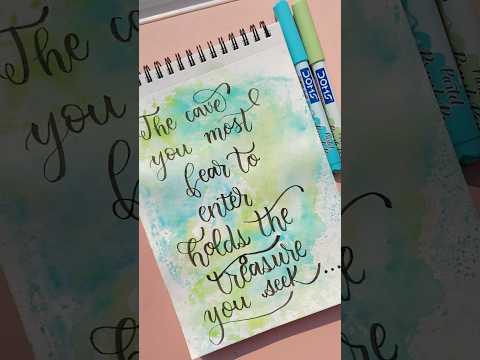 The cave
you most
fear to
enter
holds the
treasure
you seek...
DOMS
DOMS